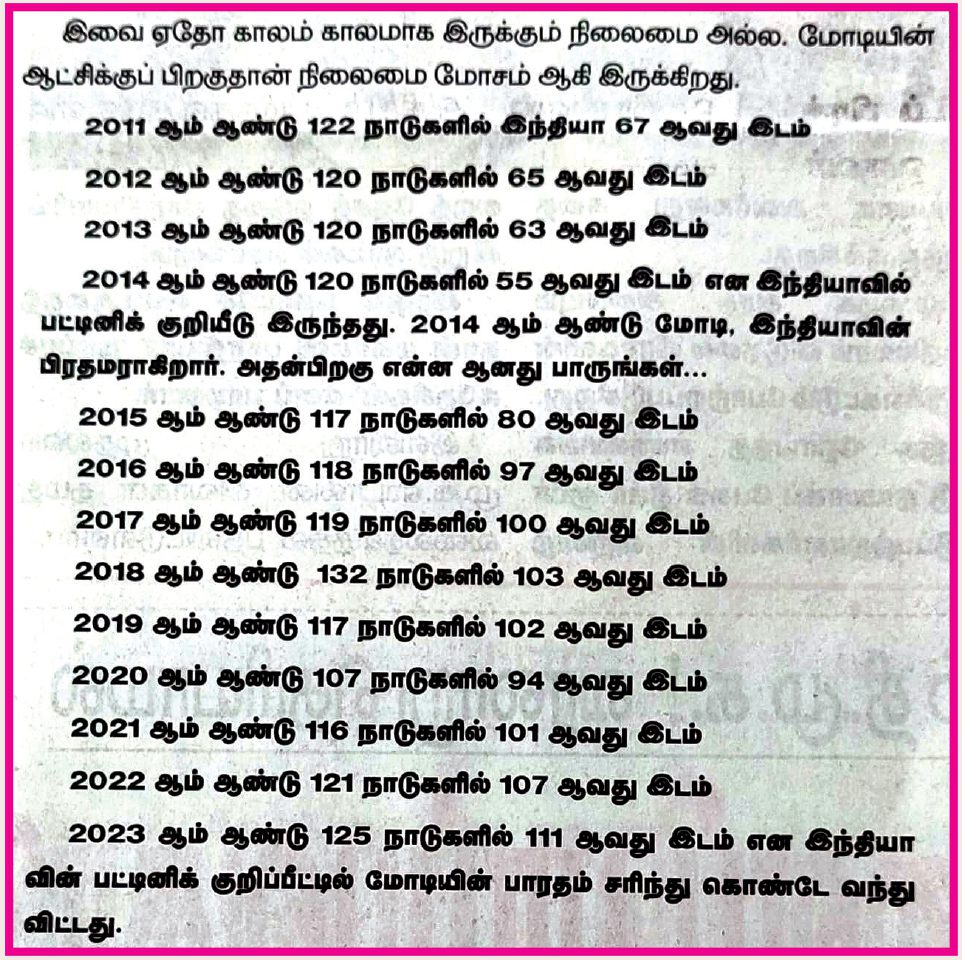 இவை ஏதோ காலம் காலமாக இருக்கும் நிலைமை அல்ல. மோடியின்
ஆட்சிக்குப் பிறகுதான் நிலைமை மோசம் ஆகி இருக்கிறது.
2011 ஆம் ஆண்டு 122 நாடுகளில் இந்தியா 67 ஆவது இடம்
2012 ஆம் ஆண்டு 120 நாடுகளில் 65 ஆவது இடம்
2013 ஆம் ஆண்டு 120 நாடுகளில் 63 ஆவது இடம்
2014 ஆம் ஆண்டு 120 நாடுகளில் 55 ஆவது இடம் என இந்தியாவில்
பட்டினிக் குறியீடு இருந்தது. 2014 ஆம் ஆண்டு மோடி, இந்தியாவின்
பிரதமராகிறார். அதன்பிறகு என்ன ஆனது பாருங்கள்...
2015 ஆம் ஆண்டு 117 நாடுகளில் 80 ஆவது இடம்
2016 ஆம் ஆண்டு 118 நாடுகளில் 97 ஆவது இடம்
2017 ஆம் ஆண்டு 119 நாடுகளில் 100 ஆவது இடம்
2018 ஆம் ஆண்டு 132 நாடுகளில் 103 ஆவது இடம்
2019 ஆம் ஆண்டு 117 நாடுகளில் 102 ஆவது இடம்
2020 ஆம் ஆண்டு 107 நாடுகளில் 94 ஆவது இடம்
2021 ஆம் ஆண்டு 116 நாடுகளில் 101 ஆவது இடம்
2022 ஆம் ஆண்டு 121 நாடுகளில் 107 ஆவது இடம்
2023 ஆம் ஆண்டு 125 நாடுகளில் 111 ஆவது இடம் என இந்தியா
வின் பட்டினிக் குறிப்பீட்டில் மோடியின் பாரதம் சரிந்து கொண்டே வந்து
விட்டது.